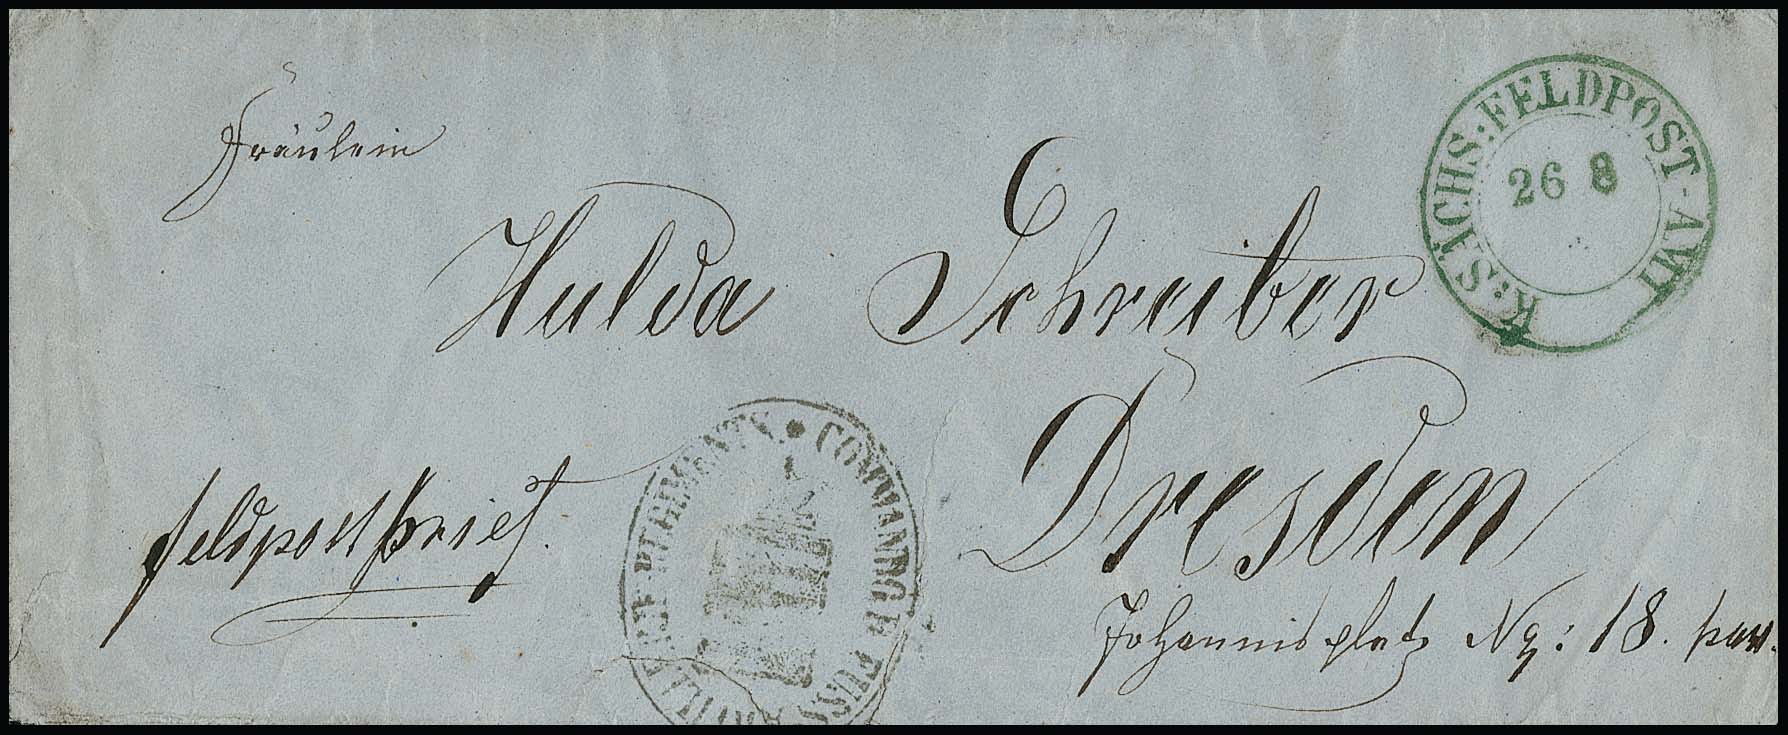 Fräulein
Hulda Schreiber
Dresden
Johannisplatz No: 18. part.
Feldpostbrief.
K: SÄCHS: FELDPOST-AMT
26 8
COMMANDO D. FUSS ARTILLERIE REGIMENTS